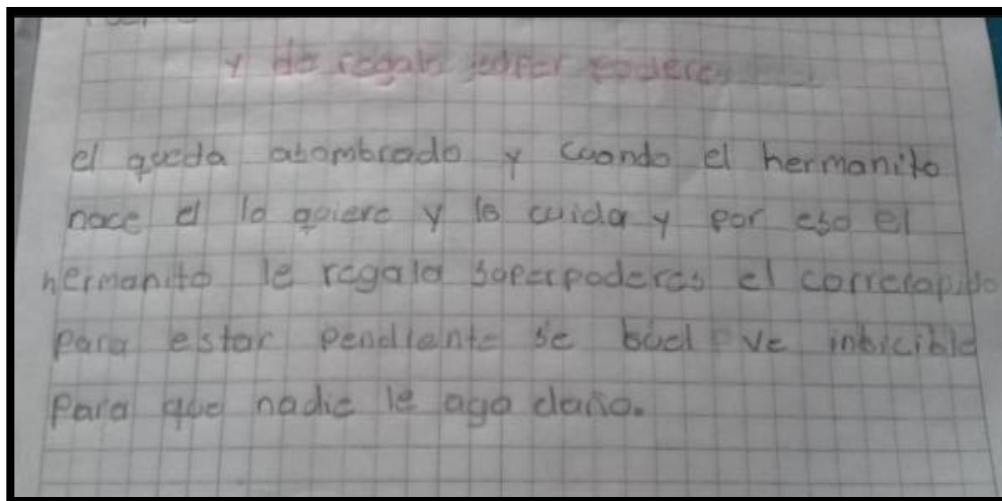 y de regalo super poderes
el queda asombrado y cuando el hermanito
nace el lo quiere y lo cuida y por eso el
hermanito le regala superpoderes el correrapido
para estar pendiente se buel ve inbicible
para que nadie le aga daño.